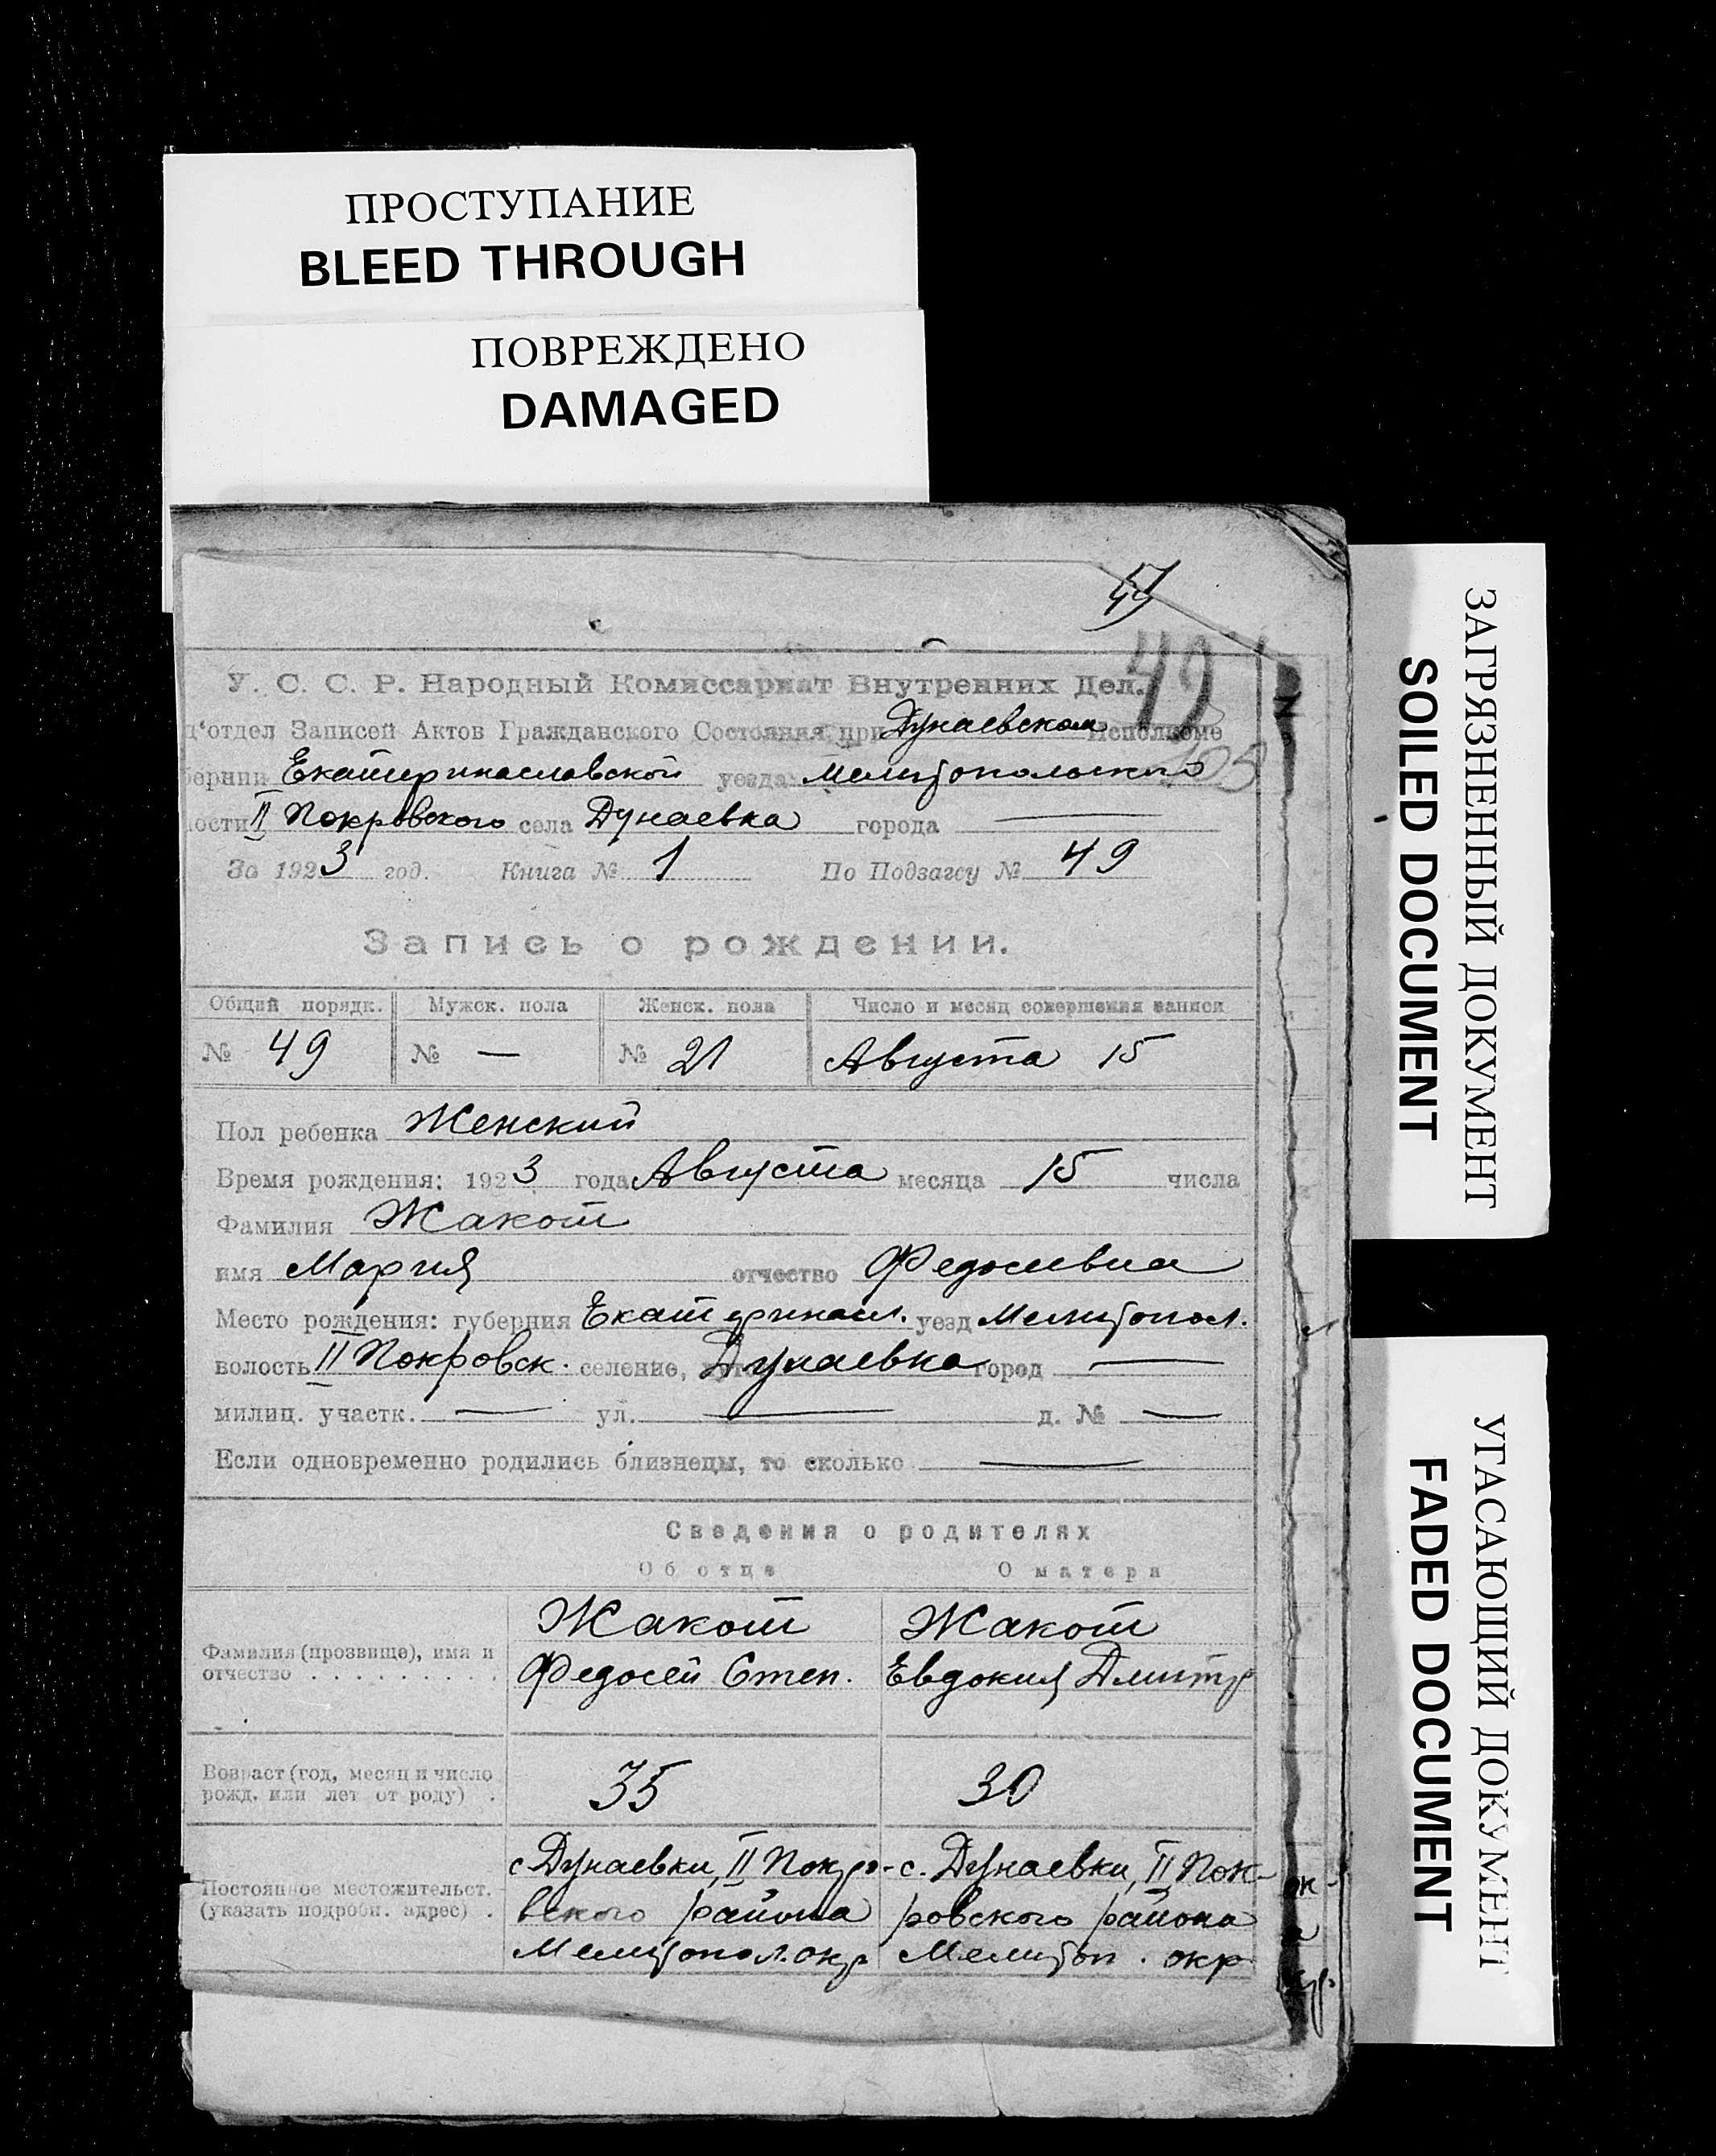 ПРОСТУПАНИЕ
BLEED THROUGH
ПОВРЕЖДЕНО
DAMAGED
49
У. С. С. Р. Народный Комиссариат Внутренних Дел.
д‘отдел Записей Актов Гражданского Состояния при Дунаевском Исполкоме
бернии Екатеринославской уезда Мелитопольского
ости II Покровского села Дунаевка города —
За 1923 год. Книга № 1 По Подзагсу № 49
Запись о рождении.
Общий порядк. Мужск. пола Женск. пола Число и месяц совершения записи
№ 49 № — № 21 Августа 15
Пол ребенка Женский
Время рождения: 1923 года Августа месяца 15 числа
Фамилия Жакот
имя Мария отчество Федосевна
Место рождения: губерния Екатеринасл. уезд Мелитопол.
волость II Покровск. селение, Дунаевка город —
милиц. участк. — ул. — д. № —
Если одновременно родились близнецы, то сколько —
Сведения о родителях
Об отце О матери
Жакот Жакот
Фамилия (прозвище), имя и
отчество . . . . . . . . . Федосей Степ. Евдокия Дмитр
Возраст (год, месяц и число
рожд. или лет от роду) . 35 30
с Дунаевки, II Покро- с. Дунаевки, II Пок-
Постоянное местожительст.
(указать подробн. адрес) . вского района ровского района
Мелитопол. окр Мелитоп. окр
ЗАГРЯЗНЕННЫЙ ДОКУМЕНТ
SOILED DOCUMENT
УГАСАЮЩИЙ ДОКУМЕНТ
FADED DOCUMENT